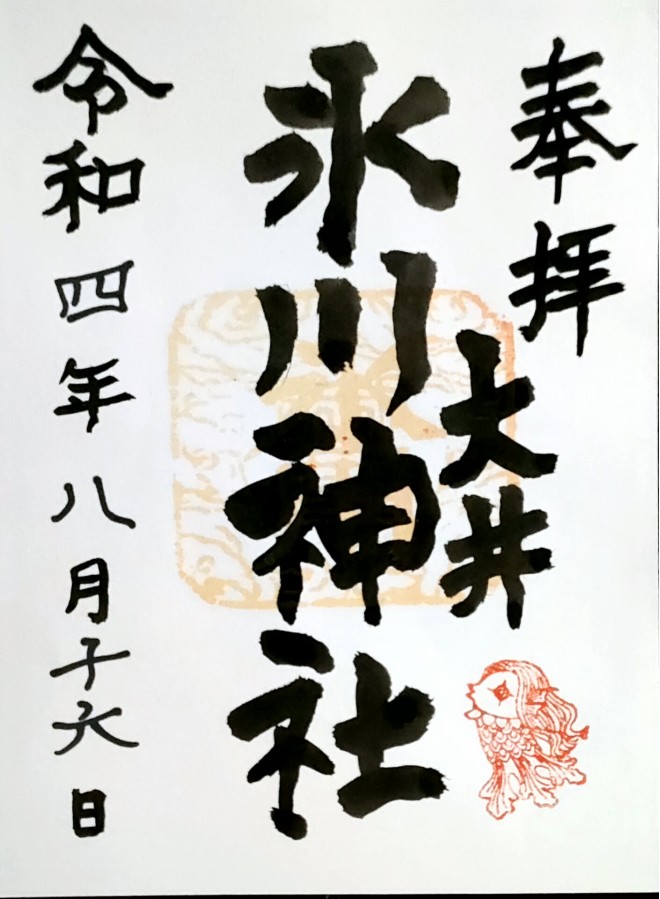 奉拝
大井
氷川神社
令和四年八月十六日